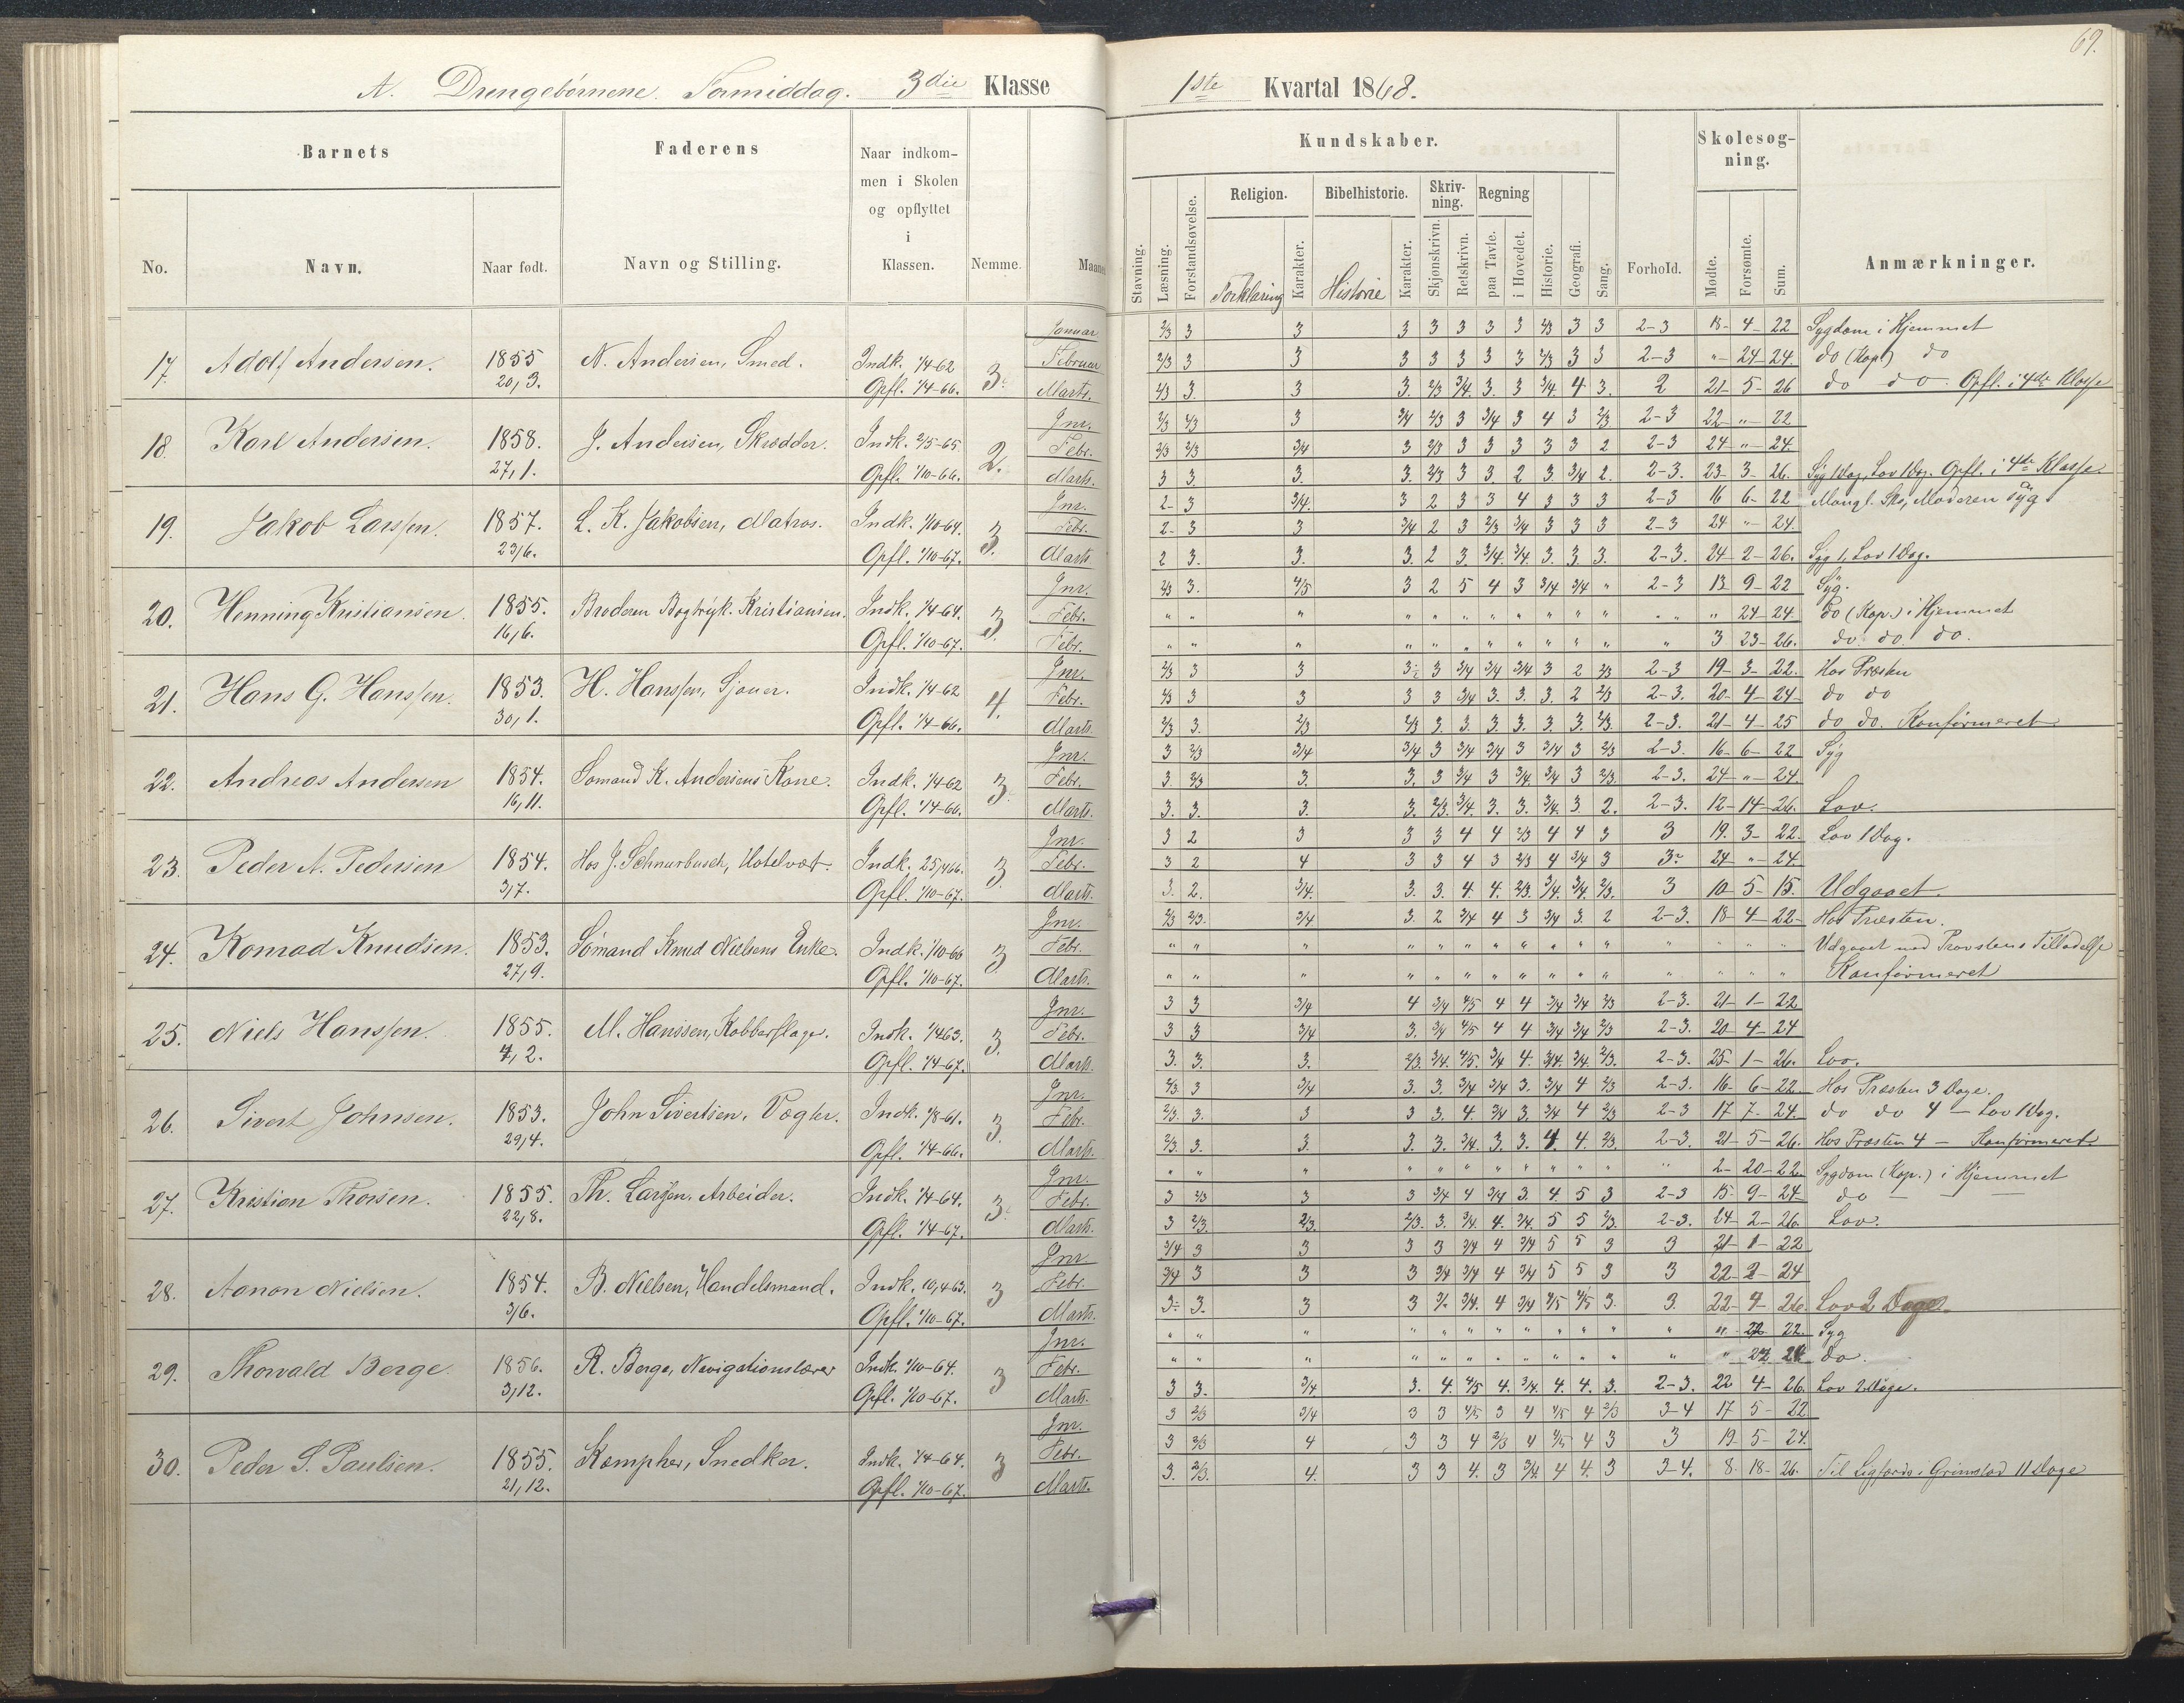 69.
A. Drengebørnene. Formiddag. 3die Klasse
1ste Kvartal 1868.
Barnets
Faderens
Naar indkom-
men i Skolen
og opflyttet
i
Klassen.
Nemme.
Maanet
No.
Navn.
Naar født.
Navn og Stilling.
Kundskaber.
Skolesøg-
ning.
Stavning.
Læsning.
Forstandsøvelse.
Religion.
Forklaring
Karakter.
Bibelhistorie.
Historie
Karakter.
Skriv-
ning.
Skjønskrivn.
Retskrivn.
Regning
paa Tavle.
i Hovedet.
Historie.
Geografi.
Sang.
Forhold.
Mødte.
Forsømte.
Sum.
Anmærkninger.
17. Adolf Andersen. 1855 20/3. N. Andersen, Smed. Indk. 1/4-62 Opfl. 1/4-66. 3.
Januar 2/3 3 3 3 3 3 3 3 2/3 3 3 2-3 18-4-22 Sygdom i Hjemmet
Februar 2/3 3 3 3 3 3 3 3 2/3 3 3 2-3 "-24-24. do (Kop.) do
Marts. 2/3 3. 3 3. 2/3 3/4. 3. 3 3/4. 4 3. 2 21-5-26 do do Opfl. i 4de Klasse
18. Karl Andersen. 1858. 27/1. J. Andersen, Skrædder. Indk. 2/5-65 Opfl. 1/10-66. 2.
Jnr. 2/3 2/3 3 3/4 2/3 3 3/4 3 4 3 2/3 2-3 22-"-22
Febr. 2/3 2/3 3/4 3 2/3 3 3 3 3 3 2 2-3 24-"-24.
Marts. 3 3. 3. 3. 2/3 3 3. 2 3. 3/4 2. 2-3. 23-3-26. Syg 1 Dag, Lov 1 Dag. Opfl. i 4de Klasse
19. Jakob Larssen. 1857. 23/6. L. K. Jakobsen, Matros. Indk. 1/10-64. Opfl. 1/10-67. 3.
Jnr. 2-3 3/4. 3 2 3 3 4 3 3 3 2-3 16 6-22 Mangl. Sko, Moderen syg
Febr. 2-3 3 3/4 2 3 2/3 3/4 3 3 3 2-3 24 "-24.
Marts 2 3. 3. 3. 2 3. 3/4. 3/4. 3. 3. 3. 2-3. 24-2-26. Syg 1, Lov 1 Dag.
20. Henning Kristiansen. 1855. 16/6. Broderen Bogtryk. Kristiansen. Indk. 1/4-64. Opfl. 1/10-67. 3.
Jnr. 2/3 3. 4/5 3 2 5 4 3 3/4 3/4 " 2-3 13 9-22 Syg.
Febr. " " " " " " " " " " " " " 24-24. do (Kop.) i Hjemmet
Febr. " " " " " " " " " " " " 3 23-26. do do do.
21. Hans G. Hanssen. 1853. 30/1. H. Hanssen, Sjouer. Indk. 1/4-62 Opfl. 1/4-66. 4.
Jnr. 2/3 3 3 3. 3 3/4 3/4 3/4 3 2 2/3 2-3 19-3-22. Hos Præsten
Febr. 2/3 3 3 3 3 3/4 3. 3. 3. 2 2/3 2-3. 20-4-24 do do
Marts. 2/3 3. 2/3 2/3 3. 3. 3. 3. 3. 3. 2/3. 2-3. 21-4-25 do do. Konfirmeret
22. Andreas Andersen 1854. 16/11. Sømand K. Andersens Kone. Indk. 1/4-62 Opfl. 1/4-66. 3.
Jnr. 3 2/3 3/4 3/4 3 3/4 3/4 3 3/4 3 2/3 2-3. 16-6-22 Syg
Febr. 3 2/3 3. 3. 3 3/4 3 3/4. 3/4 3 2/3. 2-3. 24-"-24.
Marts. 3. 3. 3. 3. 2/3. 3/4. 3. 3. 3/4. 3. 2. 2-3. 12-14-26. Lov.
23. Peder A. Pedersen 1854. 3/7. Hos J. Schnurbusch, Hotelvært. Indk. 25/4 66. Opfl. 1/10-67. 3.
Jnr. 3 2 3 3 3 4 4 2/3 4 4 3 3 19. 3-22. Lov 1 Dag.
Febr. 3 2 4 3 3 4 3 2/3 4 3/4 3 3 24-"-24.
Marts. 3. 2. 3/4. 3. 3. 4. 4. 2/3. 3/4. 3/4. 2/3. 3 10-5-15. Udgaaet.
24. Konrad Knudsen. 1853. 27/9. Sømand Knud Nielsens Enke. Indk. 1/10-60 Opfl. 1/10-67. 3.
Jnr. 2/3 2/3. 3/4 3. 2 3/4 4 3 3/4 3. 2 2-3. 18-4-22- Hos Præsten.
Febr. " " " " " " " " " " " " " " " Udgaaet med Provstens Tilladelse
Marts. " " " " " " " " " " " " " " " Konfirmeret
25. Niels Hanssen. 1855. 7/2. M. Hanssen, Kobberslager. Indk. 1/4 63. Opfl. 1/4-67. 3.
Jnr. 3 3 3/4 4 3/4 4/5 4 4 3/4 3/4 2/3 2-3. 21-1-22
Febr. 3 3 3/4 3. 3/4 4/5 4 4 3/4 3/4 2/3 2-3. 20-4-24
Marts. 3. 3. 3. 2/3. 3/4. 4/5. 3/4 4. 3/4. 3/4. 2/3. 2-3. 25-1-26. Lov.
26. Sivert Johnsen. 1853. 29/4. John Sivertsen. Vægter. Indk. 1/8-61. Opfl. 1/4-66. 3.
Jnr. 2/3. 3 3/4 3. 3. 3/4 3/4 3. 3/4 4 2/3 2-3. 16-6-22 Hos Præsten 3 Dage.
Febr. 2/3. 3. 3 3 3. 4. 3/4 3. 3/4 4 2/3 2-3 17 7-24. do do 4 - Lov 1 Dag.
Marts. 2/3. 3. 3. 3. 3. 3/4. 3. 3. 4. 4. 2/3. 2-3. 21-5-26. Hos Præsten 4 - Konfirmeret.
27. Kristian Thorsen. 1855. 22/8. Th. Larssen. Arbeider. Indk. 1/4-64. Opfl. 1/4-67. 3.
Jnr. " " " " " " " " " " " " 2-20-22. Sygdom (Kop.) i Hjemmet
Febr. 3 2/3 3 3 3/4 4 3/4 3. 4. 5 3 2-3 15-9-24 do - -
Marts. 3 2/3. 2/3. 2/3. 3. 3/4. 4. 3/4. 5 5 2/3. 2-3. 24-2-26. Lov.
28. Aanon Nielsen. 1854. 3/6. B. Nielsen, Handelsmand. Indk. 10/4 63. Opfl. 1/10-67. 3
Jnr. 3/4 3 3 3 3 3/4 4 3/4 5 5 3 3 21-1-22
Febr. 3/4 3 3 3 3/4 3/4 4 3/4 5 5 3 3 22-2-24
Marts. 3. 3. 3 3 3/4. 4 3/4 4/5 4/5 3. 3. 22-4-26. Lov 2 Dage.
29. Thorvald Berge 1856. 3/12. R. Berge, Navigationslærer Indk. 1/10-64. Opfl. 1/10-67. 3
Jnr. " " " " " " " " " " " " " 22 22. Syg
Febr. " " " " " " " " " " " " " 24 24 do.
Marts. 3 3. 3/4 3. 4. 4/5 4. 3/4. 4. 4. 3. 2-3. 22 4-26. Lov 2 Dage.
30. Peder S. Paulsen. 1855. 21/12. Kæmpher, Snedker. Indk. 1/4-64. Opfl. 1/10-67. 3
Jnr. 3 2/3 3/4 3 3 4/5 3 4 4/5 4 2/3 3-4 17 5-22
Febr. 3 2/3 4 3 3 4 2/3 4 4/5 4 3 3 19-5-24.
Marts. 3. 2/3. 4. 3 3 4. 3 3/4. 4 4. 3 3-4. 8-18-26. Til Ligfærd i Grimstad 11 Dage